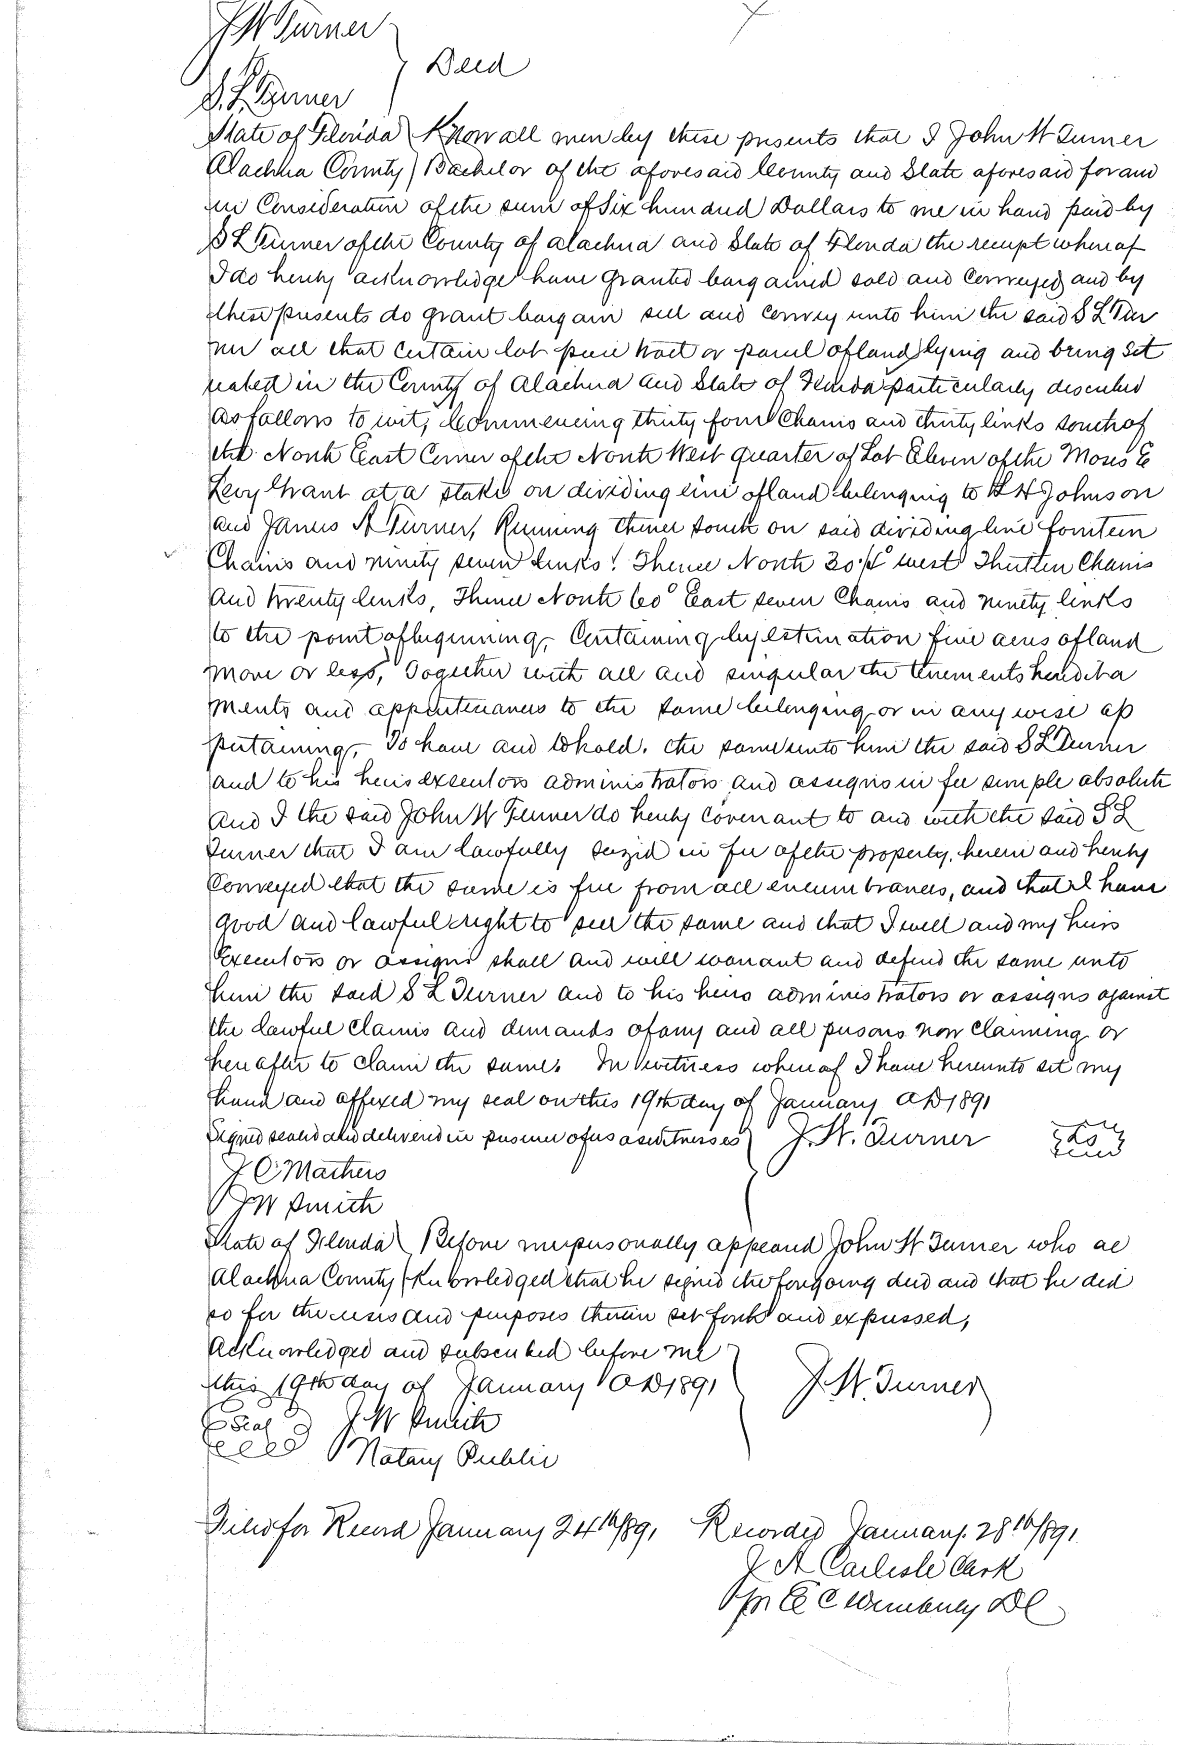 J W Turner
to } Deed
S. L. Turner
State of Florida } Know all men by these presents that I John W Turner
Alachua County } Bachelor of the aforesaid County and State aforesaid for and
in Consideration of the sum of Six hundred Dollars to me in hand paid by
S L Turner of the County of Alachua and State of Florida the receipt whereof
I do hereby acknowledge have granted bargained sold and Conveyed and by
these presents do grant bargain sell and convey unto him the said S L Tur
ner all that certain lot piece tract or parcel of land lying and being sit
uated in the County of Alachua and State of Florida particularly described
as follows to wit, Commencing thirty four Chains and thirty links south of
the North East Corner of the North West quarter of Lot Eleven of the Moses E
Levy Grant at a stake on dividing line of land belonging to H Johnson
and James A Turner, Running thence south on said dividing line fourteen
Chains and ninety seven links! Thence North 30 1/4° west Thirteen Chains
and twenty links, Thence North 60° East seven Chains and ninety links
to the point of beginning, Containing by estimation five acres of land
more or less, Together with all and singular the tenements heredita
ments and appurtenances to the same belonging or in any wise ap
pertaining, To have and to hold. the same unto him the said S L Turner
and to his heirs executors administrators and assigns in fee simple absolute
And I the said John W Turner do hereby covenant to and with the said S L
Turner that I am lawfully seized in fee of the property, herein and hereby
Conveyed that the same is free from all encumbrances, and that I have
good and lawful right to sell the same and that I will and my heirs
Executors or assigns shall and will warrant and defend the same unto
him the said S L Turner and to his heirs administrators or assigns against
the lawful claims and demands of any and all persons now claiming or
hereafter to claim the same. In witness whereof I have hereunto set my
hand and affixed my seal on this 19th day of January AD 1891
Signed sealed and delivered in presence of us as witnesses } J. W. Turner
J C Mathers
J W Smith
State of Florida } Before me personally appeared John W Turner who ac
Alachua County } Knowledged that he signed the foregoing deed and that he did
so for the uses and purposes therein set forth and expressed,
Acknowledged and subscribed before me
this 19th day of January AD 1891 } J. W. Turner
Seal J W Smith
Notary Public
Filed for Record January 24th/891 Recorded January 28th/891
J A Carlisle Clerk
DC